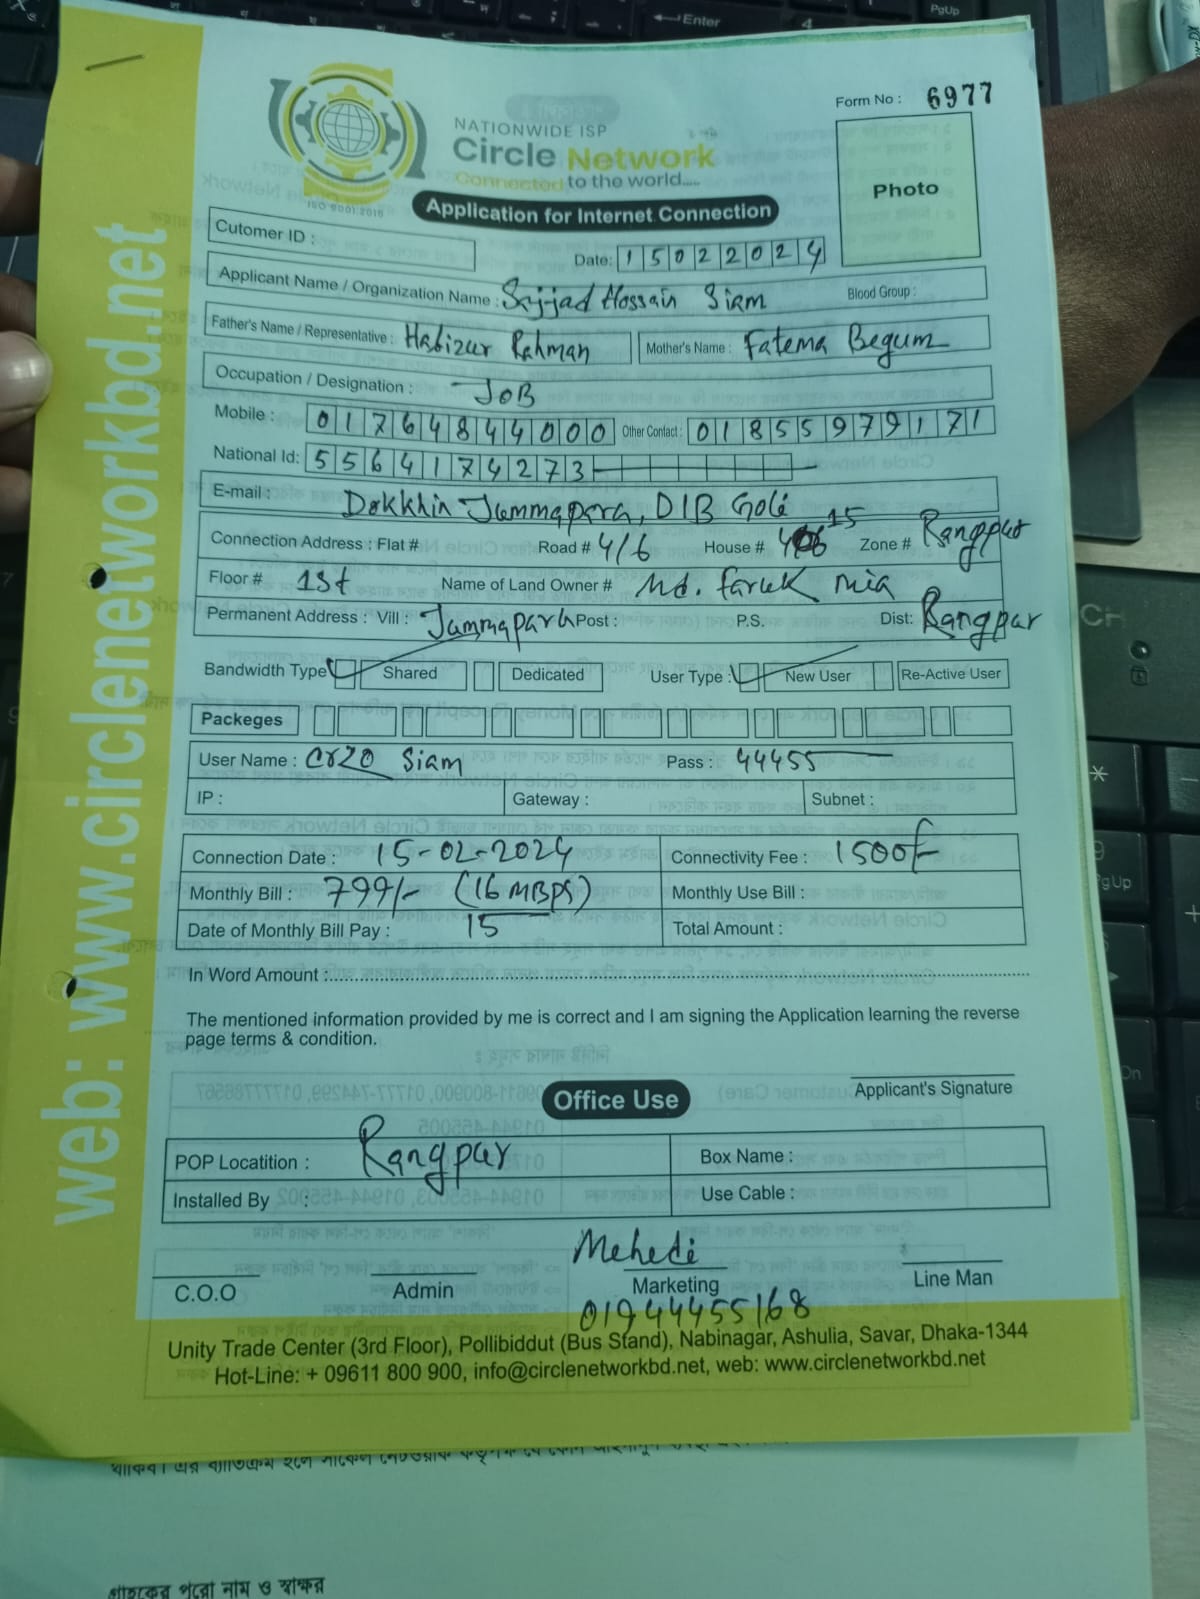 Enter
PgUp
Form No : 6977
NATIONWIDE ISP
Circle Network
Connected to the world.....
ISO 9001:2015
Photo
Application for Internet Connection
Cutomer ID :
Date: 15022024
Applicant Name / Organization Name : Sajjad Hossain Siam Blood Group :
Father's Name / Representative : Habizur Rahman Mother's Name : Fatema Begum
Occupation / Designation : JOB
Mobile : 01764844000 Other Contact : 01855979171
National Id: 5564174273
E-mail :
Dakkhin Jummapara, DIB Goli
Connection Address : Flat # Road # 4/6 House # 15 Zone # Rangpur
Floor # 1st Name of Land Owner # Md. Faruk Mia
Permanent Address : Vill : Jummapara Post : P.S. Dist: Rangpur
Bandwidth Type Shared Dedicated User Type : New User Re-Active User
Packeges
User Name : Siam Pass : 44455
IP : Gateway : Subnet :
Connection Date : 15-02-2024 Connectivity Fee : 1500/-
Monthly Bill : 799/- (16 MBPS) Monthly Use Bill :
Date of Monthly Bill Pay : 15 Total Amount :
In Word Amount :
The mentioned information provided by me is correct and I am signing the Application learning the reverse
page terms & condition.
Applicant's Signature
Office Use
POP Locatition : Rangpur Box Name :
Installed By : Use Cable :
Mehedi
C.O.O Admin Marketing Line Man
01944455168
Unity Trade Center (3rd Floor), Pollibiddut (Bus Stand), Nabinagar, Ashulia, Savar, Dhaka-1344
Hot-Line: + 09611 800 900, info@circlenetworkbd.net, web: www.circlenetworkbd.net
web: www.circlenetworkbd.net
গ্রাহকের পুরো নাম ও স্বাক্ষর